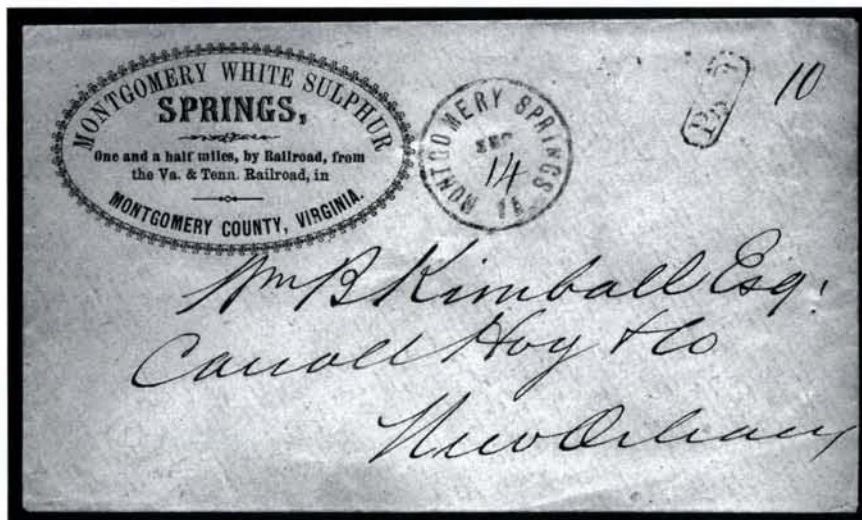 MONTGOMERY WHITE SULPHUR
SPRINGS,
One and a half miles, by Railroad, from
the Va. & Tenn. Railroad, in
MONTGOMERY COUNTY, VIRGINIA.
MONTGOMERY SPRINGS
14
PAID
10
Wm B Kimball Esq.
Carroll Hoy & Co
New Orleans